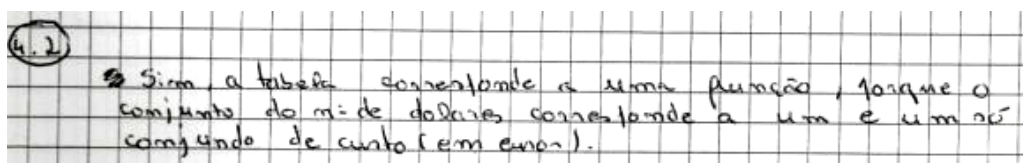 4.2
Sim, a tabela corresponde a uma função, porque o
conjunto do nº de dolares corresponde a um e um só
conjundo de custo (em euros).